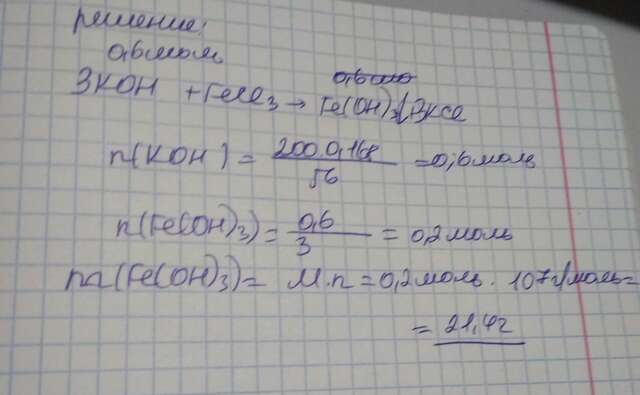 решение:
0,6 моль
3KOH + FeCl3 → Fe(OH)3↓ 3KCl
n(KOH) = 200·0,168 / 56 = 0,6 моль
n(Fe(OH)3) = 0,6 / 3 = 0,2 моль
m(Fe(OH)3) = M·n = 0,2 моль · 107 г/моль =
= 21,4г